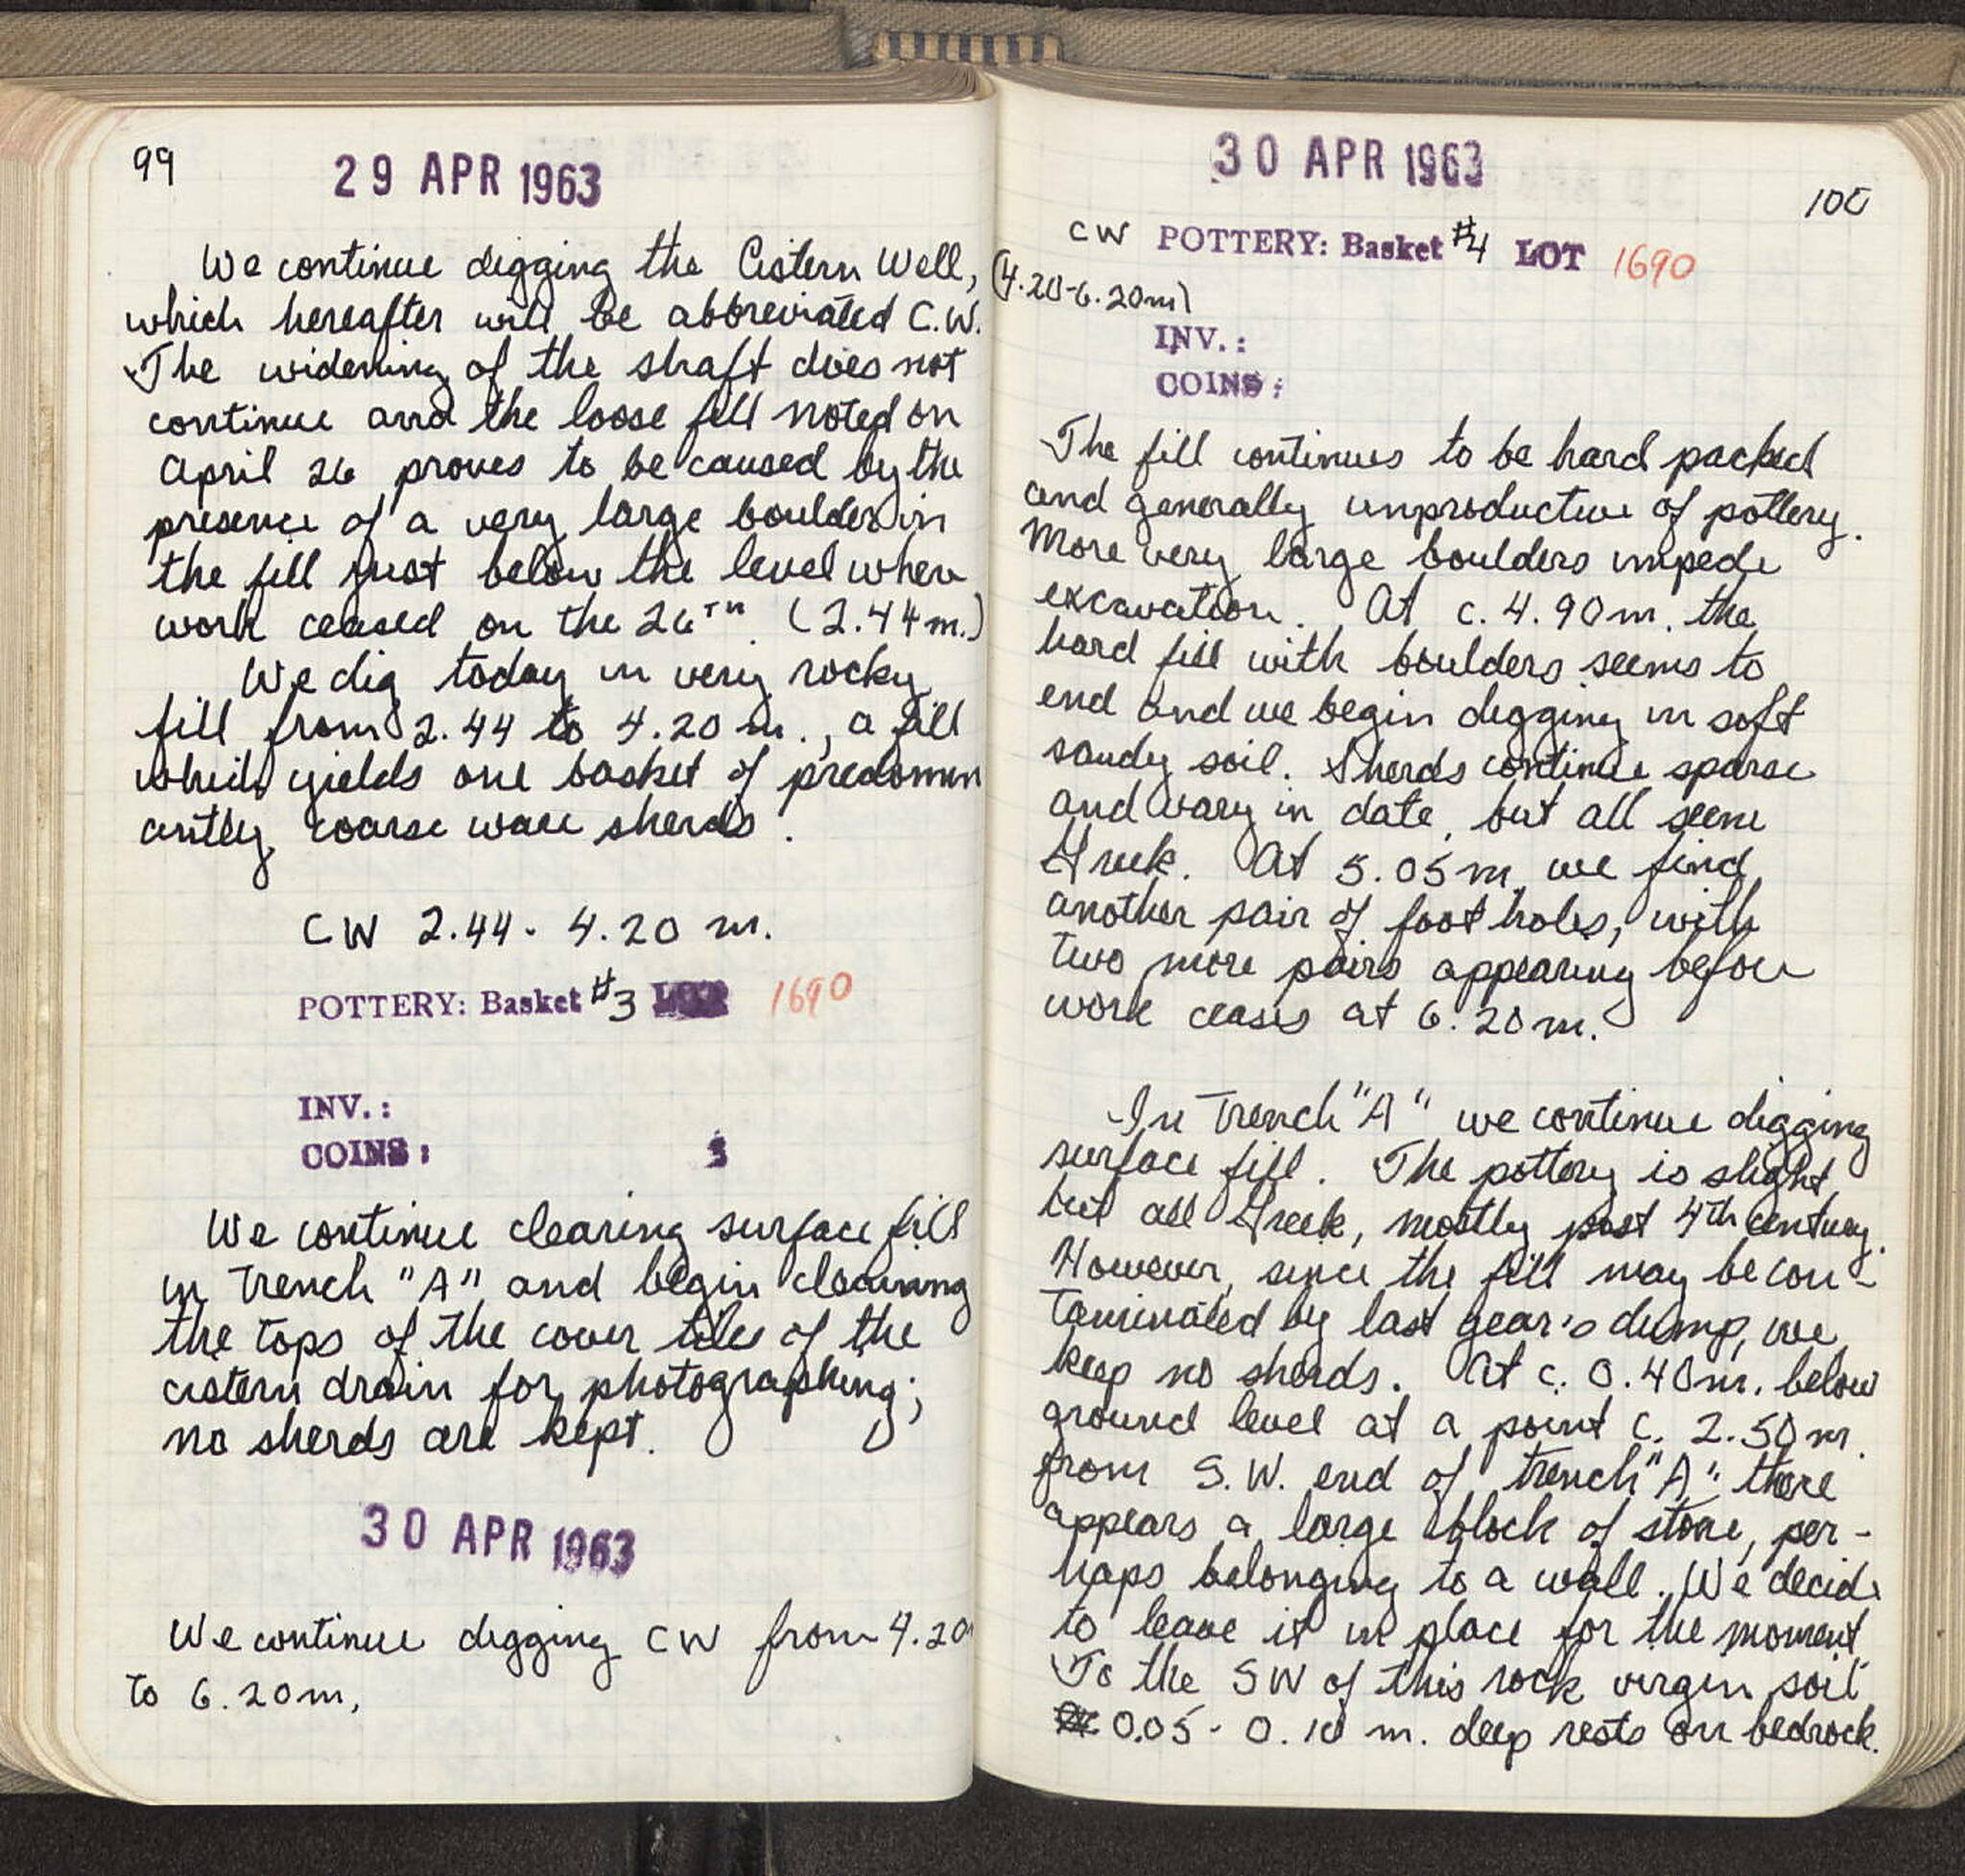 99
29 APR 1963
We continue digging the Cistern Well,
which hereafter will be abbreviated C.W.
The widening of the shaft does not
continue and the loose fill noted on
April 26 proves to be caused by the
presence of a very large boulder in
the fill just below the level where
work ceased on the 26TH. (2.44m.)
We dig today in very rocky
fill from 2.44 to 4.20 m., a fill
which yields one basket of predomin
antly coarse ware sherds.
CW 2.44 - 4.20 m.
POTTERY: Basket #3 LOT 1690
INV.:
COINS:
We continue clearing surface fill
in Trench "A" and begin cleaning
the tops of the cover tiles of the
cistern drain for photographing;
no sherds are kept.
30 APR 1963
We continue digging CW from 4.20
to 6.20m,
30 APR 1963
100
CW POTTERY: Basket #4 LOT 1690
(4.20-6.20m)
INV.:
COINS:
The fill continues to be hard packed
and generally unproductive of pottery.
More very large boulders impede
excavation. At c. 4.90m. the
hard fill with boulders seems to
end and we begin digging in soft
sandy soil. Sherds continue sparse
and vary in date, but all seem
Greek. At 5.05m. we find
another pair of foot holes, with
two more pairs appearing before
work ceases at 6.20m.
In Trench "A" we continue digging
surface fill. The pottery is slight
but all Greek, mostly post 4th century.
However, since the fill may be con-
taminated by last year's dump, we
keep no sherds. At c. 0.40m. below
ground level at a point c. 2.50m.
from S.W. end of trench "A" there
appears a large block of stone, per-
haps belonging to a wall. We decide
to leave it in place for the moment.
To the SW of this rock virgin soil
0.05 - 0.10 m. deep rests on bedrock.